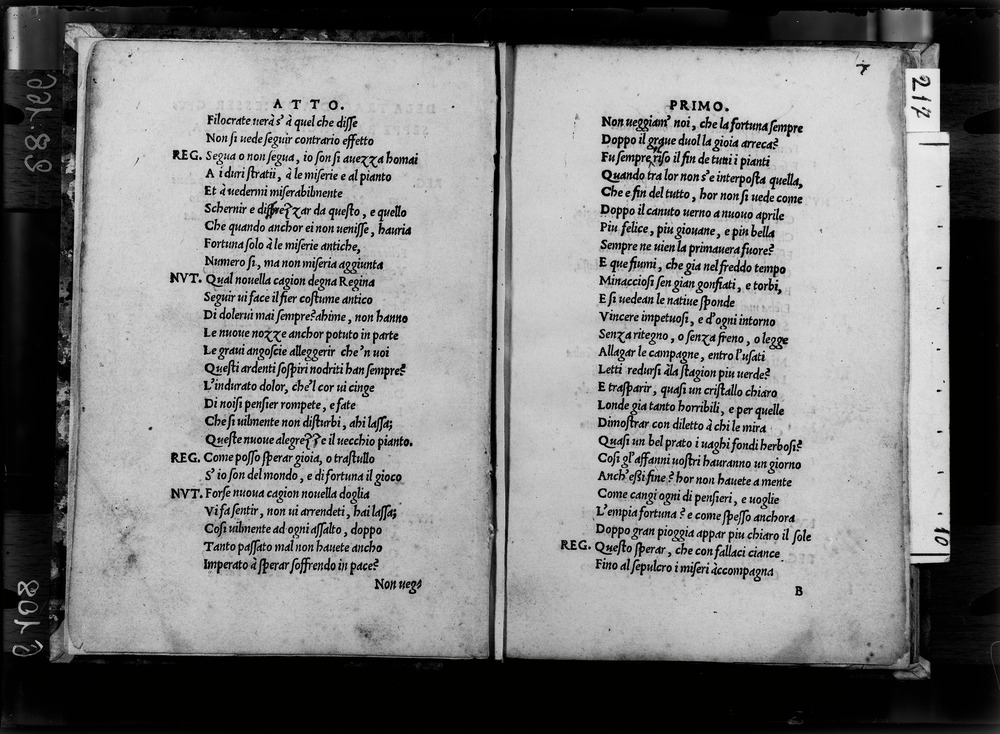 ATTO.
Filocrate uerà s' à quel che disse
Non si uede seguir contrario effetto
REG. Segua o non segua, io son si auezza homai
A i duri stratii, à le miserie e al pianto
Et à uedermi miserabilmente
Schernir e disprezzar da questo, e quello
Che quando anchor ei non uenisse, hauria
Fortuna solo à le miserie antiche,
Numero si, ma non miseria aggiunta
NVT. Qual nouella cagion degna Regina
Seguir ui face il fier costume antico
Di dolerui mai sempre? ahime, non hanno
Le nuoue nozze anchor potuto in parte
Le graui angoscie alleggerir che'n uoi
Questi ardenti sospiri nodriti han sempre?
L'indurato dolor, che'l cor ui cinge
Di noisi pensier rompete, e fate
Che si uilmente non disturbi, ahi lassa;
Queste nuoue alegrezze il uecchio pianto.
REG. Come posso sperar gioia, o trastullo
S' io son del mondo, e di fortuna il gioco
NVT. Forse nuoua cagion nouella doglia
Vi fa sentir, non ui arrendeti, hai lassa;
Cosi uilmente ad ogni assalto, doppo
Tanto passato mal non hauete ancho
Imperato à sperar soffrendo in pace?
Non ueg=
7
PRIMO.
Non ueggiam' noi, che la fortuna sempre
Doppo il graue duol la gioia arreca?
Fu sempre riso il fin de tutti i pianti
Quando tra lor non s'e interposta quella,
Che e fin del tutto, hor non si uede come
Doppo il canuto uerno a nuouo aprile
Piu felice, piu giouane, e piu bella
Sempre ne uien la primauera fuore?
E que fiumi, che gia nel freddo tempo
Minacciosi sen gian gonfiati, e torbi,
E si uedean le natiue sponde
Vincere impetuosi, e d'ogni intorno
Senza ritegno, o senza freno, o legge
Allagar le campagne, entro l'usati
Letti redursi àla stagion piu uerde?
E trasparir, quasi un cristallo chiaro
Londe gia tanto horribili, e per quelle
Dimostrar con diletto à chi le mira
Quasi un bel prato i uaghi fondi herbosi?
Cosi gl'affanni uostri hauranno un giorno
Anch'essi fine? hor non hauete a mente
Come cangi ogni di pensieri, e uoglie
L'empia fortuna? e come spesso anchora
Doppo gran pioggia appar piu chiaro il sole
REG. Questo sperar, che con fallaci ciance
Fino al sepulcro i miseri àccompagna
B
217
10